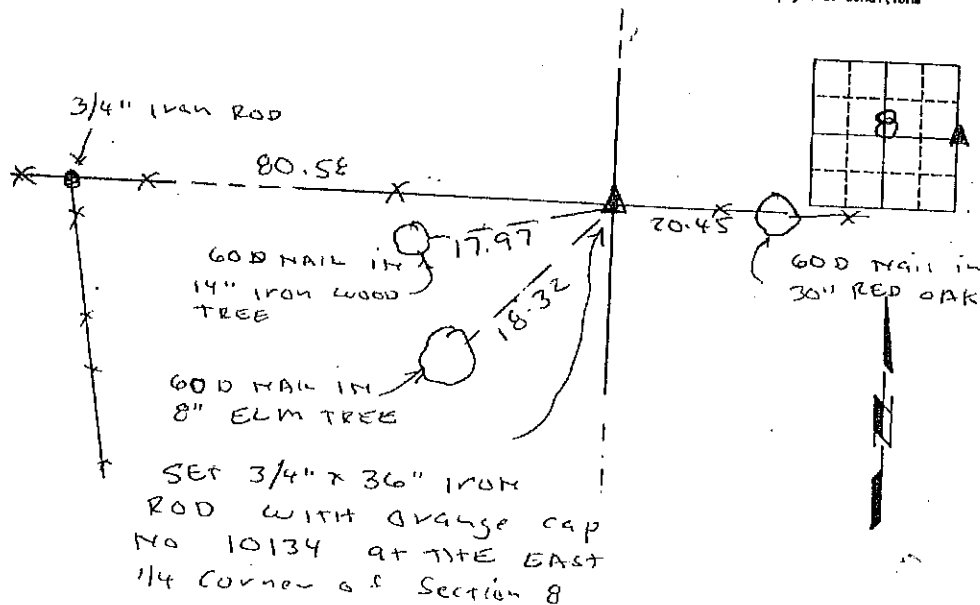 conditions
3/4" Iron ROD
80.58
8
17.97
20.45
60D NAIL IN
14" Iron WOOD
TREE
60D Nail in
30" RED OAK
18.32
60D NAIL IN
8" ELM TREE
N
SET 3/4" x 36" Iron
ROD WITH Orange cap
No 10134 at THE EAST
1/4 Corner of Section 8